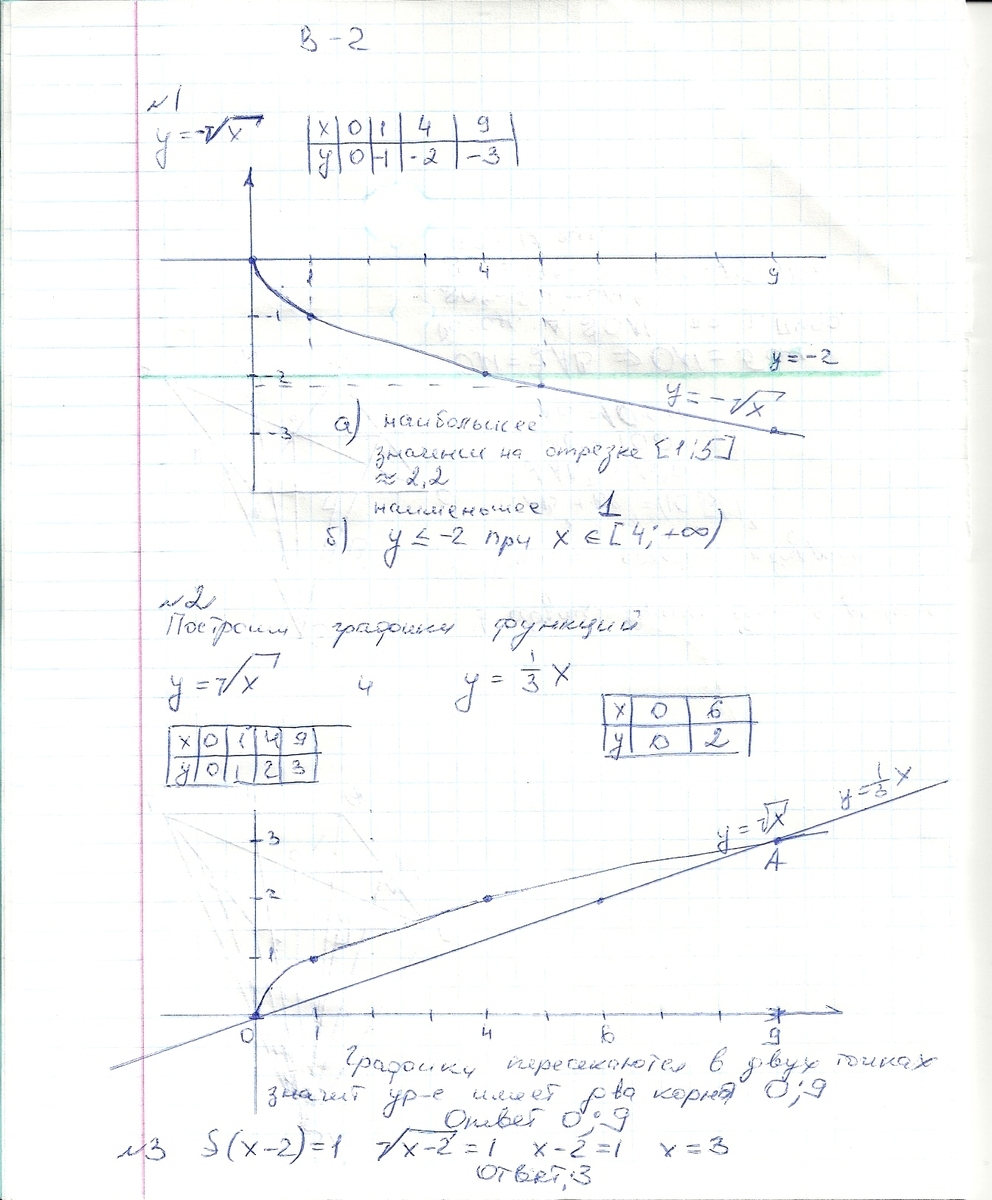 В-2
№1
y = -√x
x 0 1 4 9
y 0 -1 -2 -3
1 4 9
-1
-2
-3
y = -2
y = -√x
а) наибольшее
значение на отрезке [1;5]
≈ 2,2
наименьшее 1
б) y ≤ -2 при x ∈ [4; +∞)
№2
Построим графики функций
y = √x и y = 1/3 x
x 0 1 4 9
y 0 1 2 3
x 0 6
y 0 2
3
2
1
y = √x
y = 1/3 x
A
0 1 4 6 9
Графики пересекаются в двух точках
значит ур-е имеет два корня 0; 9
Ответ 0; 9
№3 f(x-2)=1 √x-2 = 1 x-2=1 x=3
Ответ: 3